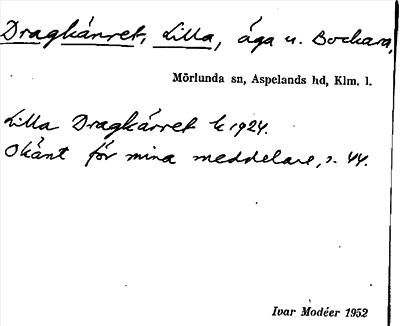 Dragkärret, Lilla, äga u. Bockara,
Mörlunda sn, Aspelands hd, Klm. l.
Lilla Dragkärret k 1924.
Okänt för mina meddelare, s. 44.
Ivar Modéer 1952